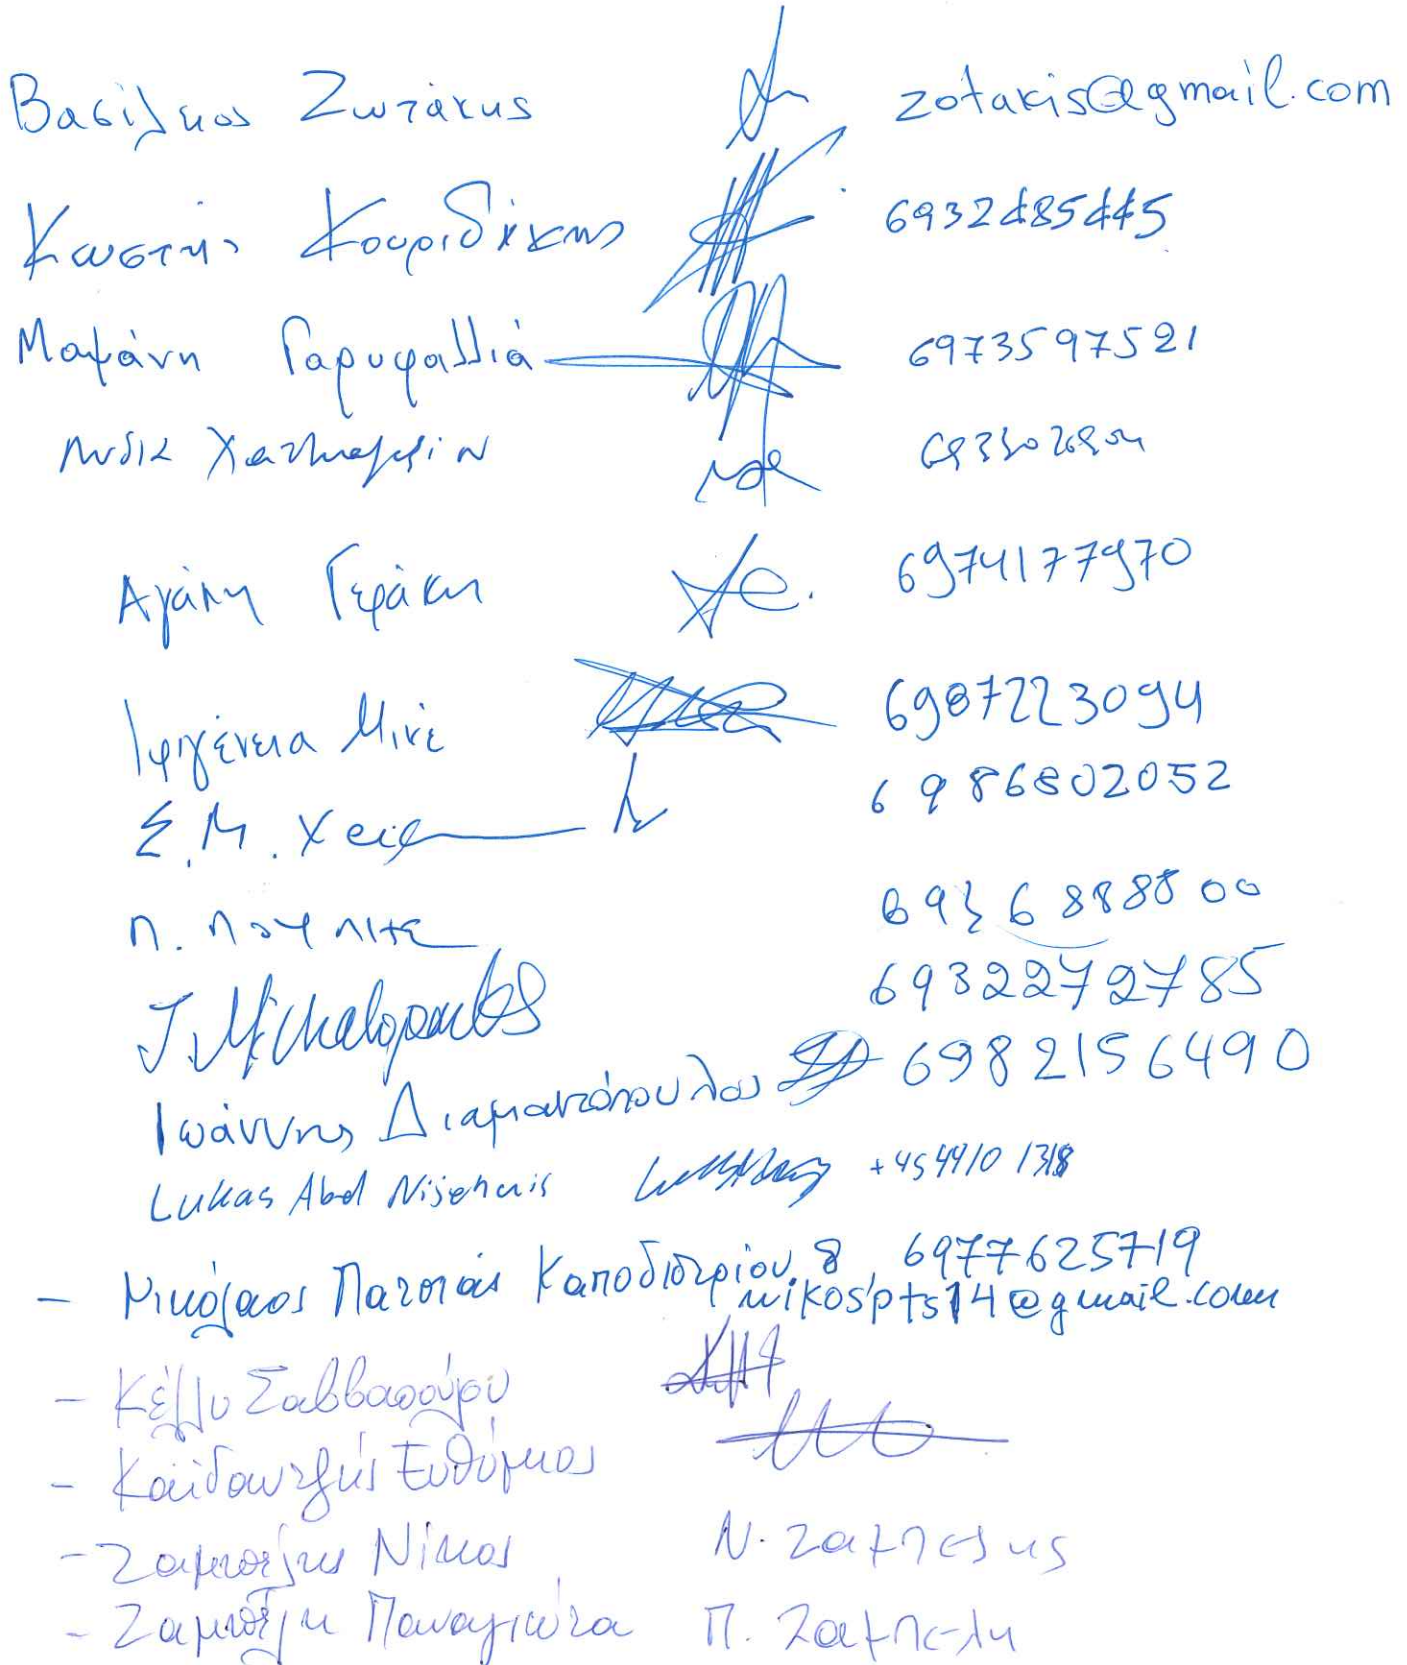 Βασίλειος Ζωτάκης zotakis@gmail.com
Κωστής Κουριδάκης 6932485445
Μαψάνη Γαρυφαλλιά 6973597521
Λυδία
Αγάπη Γεράκη 6974177970
Ιφιγένεια Μινέ 6987223094
Σ.Μ. 6986802052
Π. 6936888800
J. Michalopoulos 6932272785
Ιωάννης Διαμαντόπουλος 6982156490
Lukas Abel +45 4410 1318
- Νικόλαος Πατσιάς Καποδιστρίου 8 6977625719
nikospts14@gmail.com
- Κέλλυ Σαββαοπούλου
- Καϊδαντζής Ευθύμιος
- Ζαμπέλης Νίκος Ν. Ζαμπέλης
- Ζαμπέλη Παναγιώτα Π. Ζαμπέλη